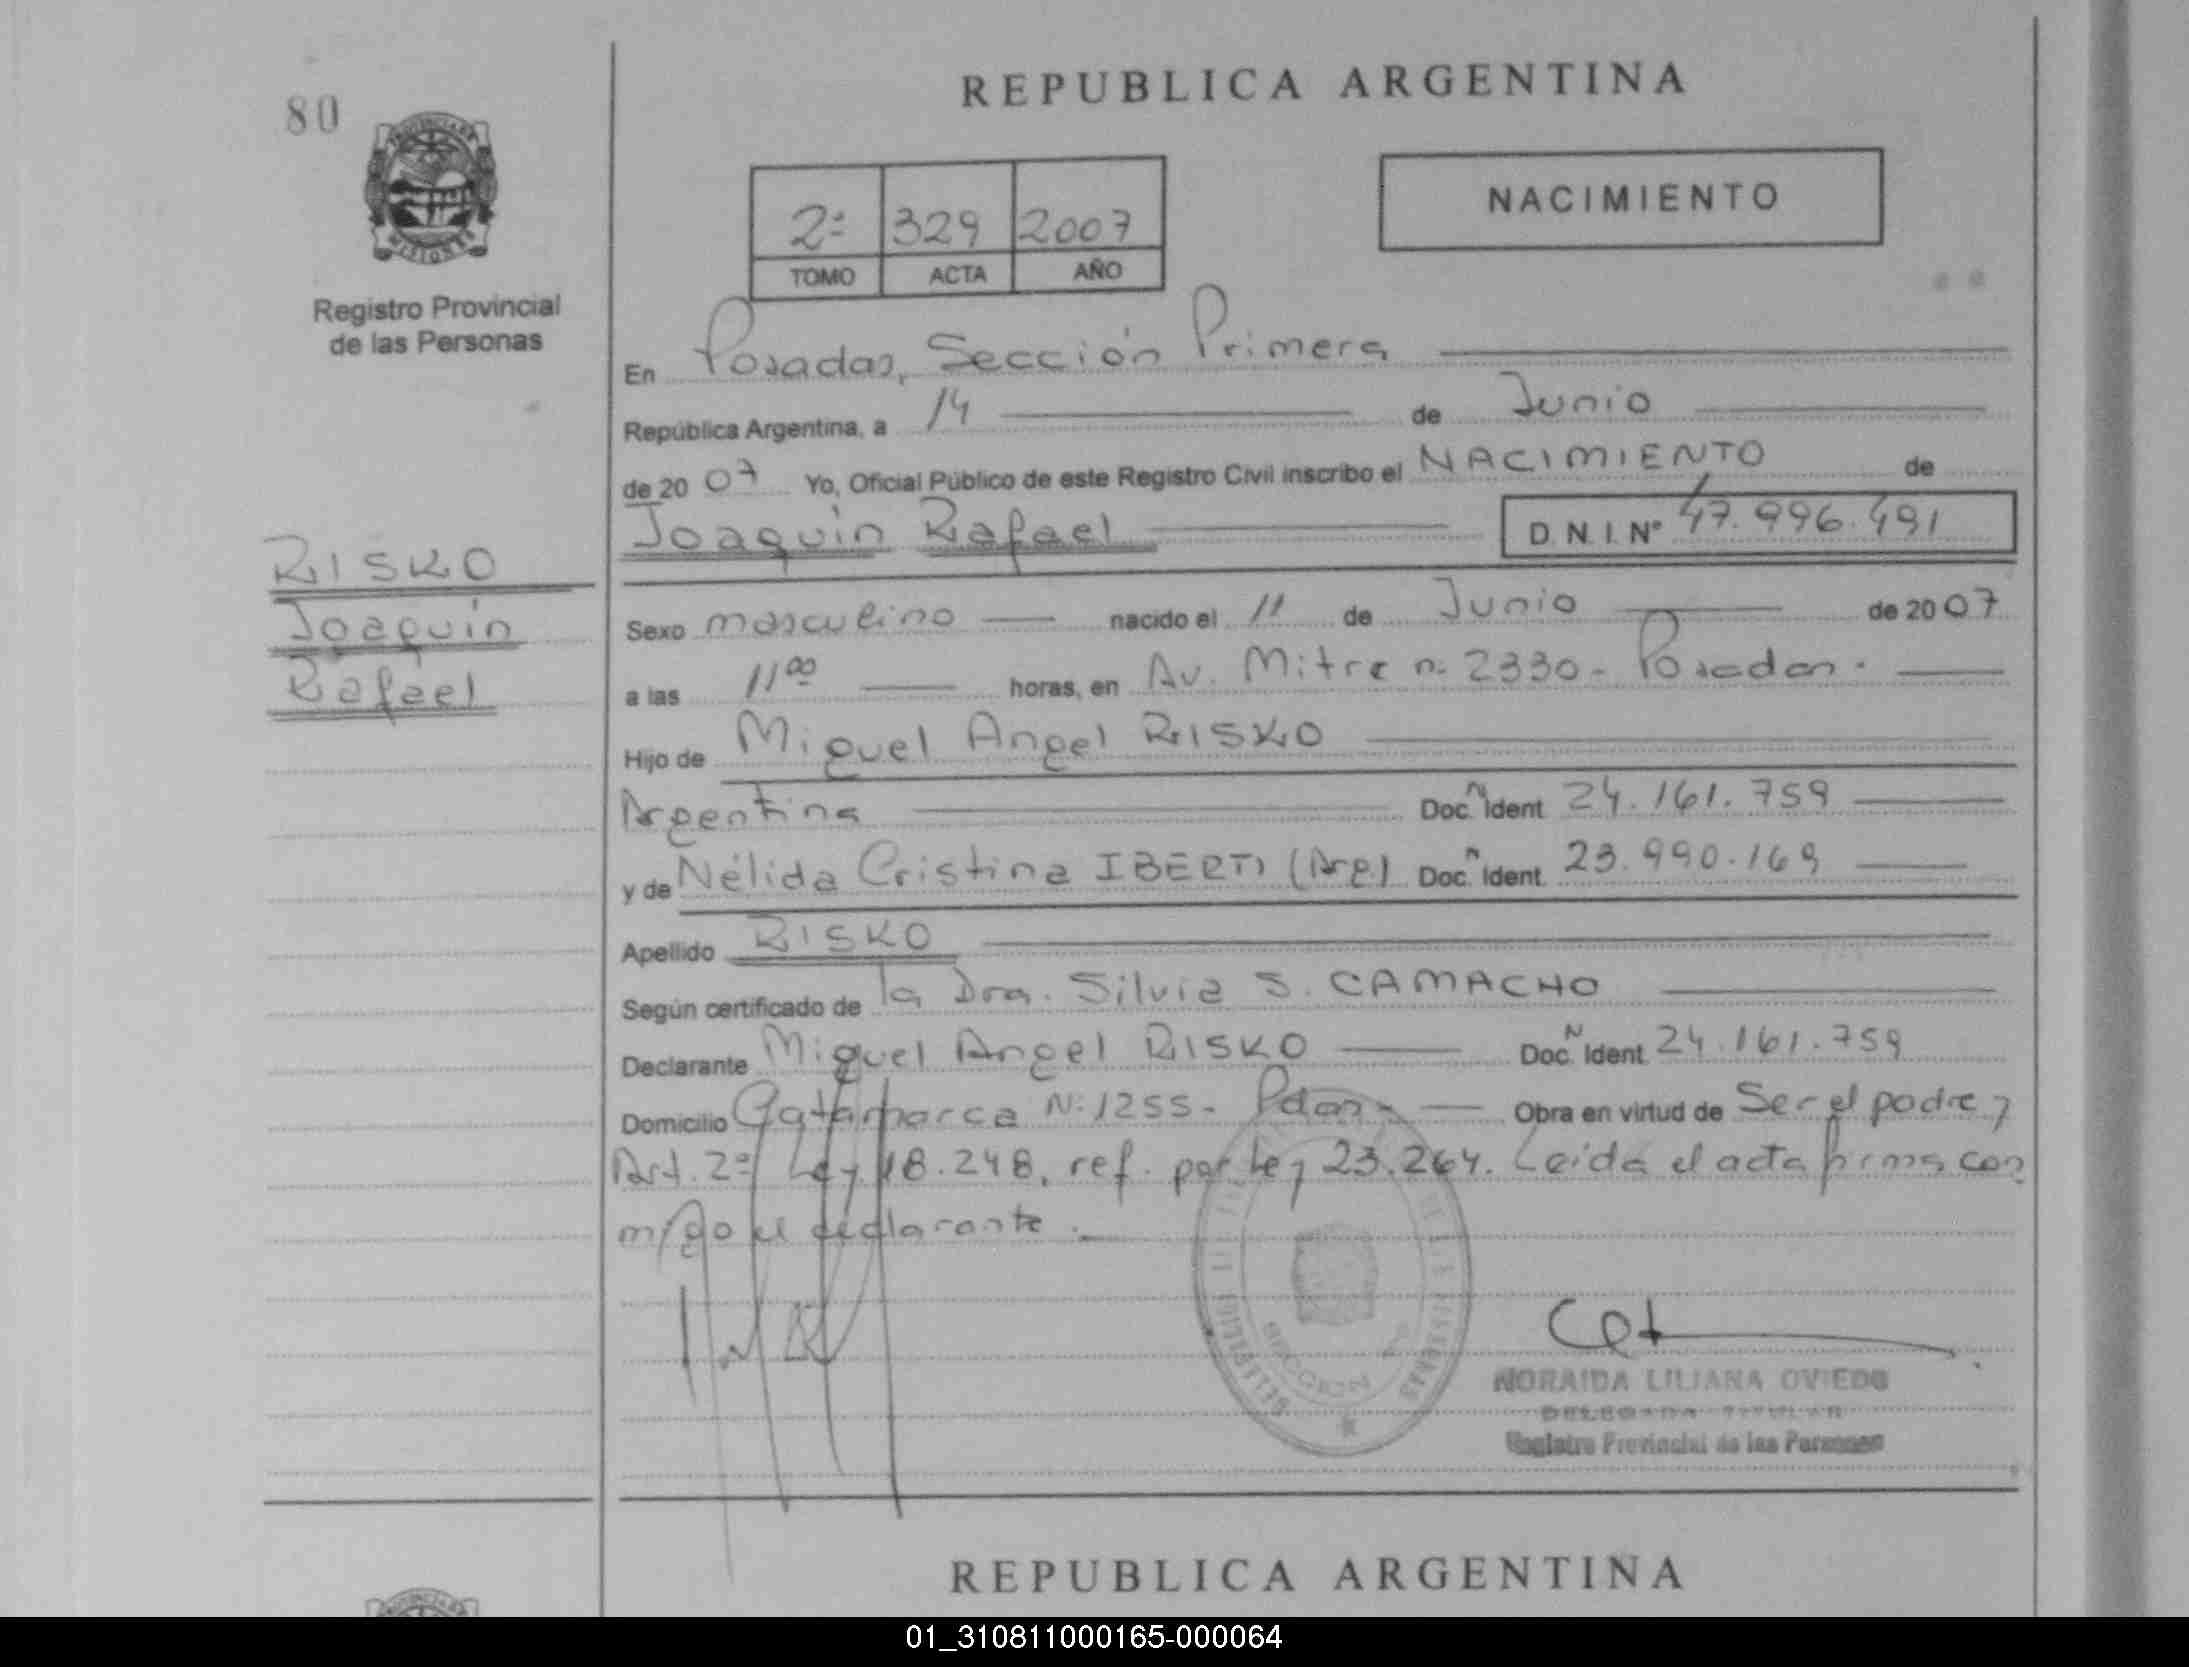 80
PROVINCIA DE
MISIONES
Registro Provincial
de las Personas
RISKO
Joaquin
Rafael
REPUBLICA ARGENTINA
2º 329 2007
TOMO ACTA AÑO
NACIMIENTO
En Posadas, Sección Primera
República Argentina, a 14 de Junio
de 2007 Yo, Oficial Público de este Registro Civil inscribo el NACIMIENTO de
Joaquin Rafael D.N.I. Nº 47.996.491
Sexo masculino nacido el 11 de Junio de 2007
a las 11 00 horas, en Av. Mitre nº 2330- Posadas.
Hijo de Miguel Angel RISKO
Argentina Doc. N Ident 24.161.759
y de Nélida Cristina IBERTI (Arg.) Doc. N Ident. 23.990.169
Apellido RISKO
Según certificado de la Dra. Silvia S. CAMACHO
Declarante Miguel Angel RISKO Doc. N Ident 24.161.759
Domicilio Catamarca Nº 1255- Pdas- Obra en virtud de Ser el padre y
Art. 2º Ley 18.248, ref. por Ley 23.264. Leída el acta firma con
migo el declarante.
SECCION
NORAIDA LILIANA OVIEDO
DELEGADA TITULAR
Registro Provincial de las Personas
REPUBLICA ARGENTINA
01_310811000165-000064